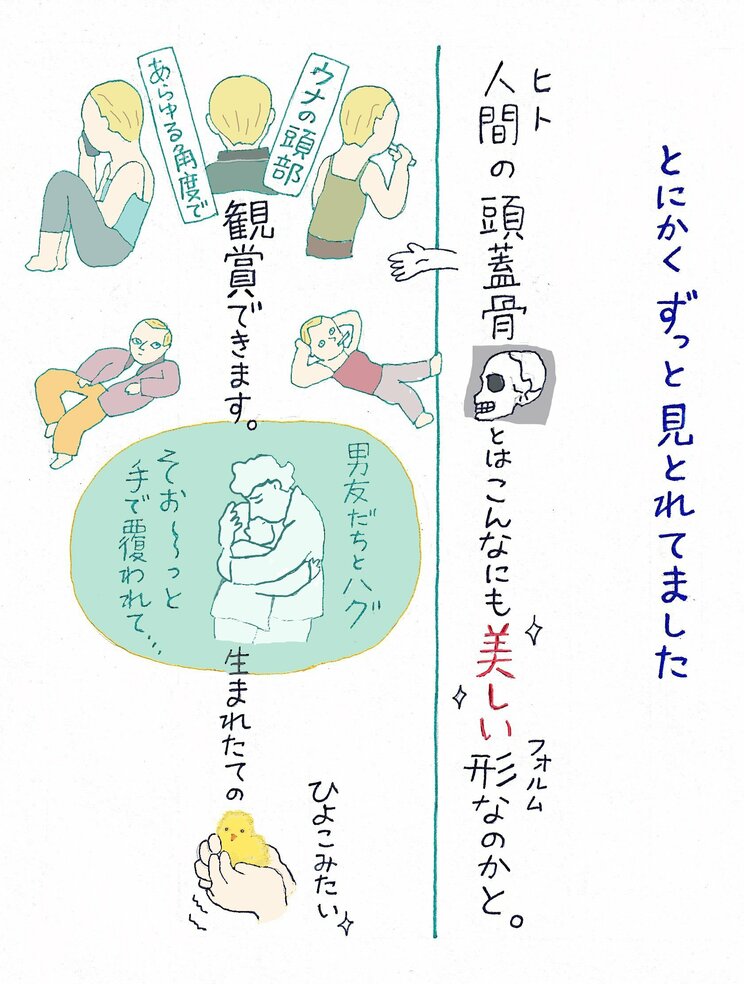 とにかくずっと見とれてました
ヒト
人間の頭蓋骨
とはこんなにも美しい形なのかと。
フォルム
ウメの頭部
あらゆる角度で
観賞できます。
男友だちとハグ
そお〜っと
手で覆われて…
生まれたての
ひよこみたい